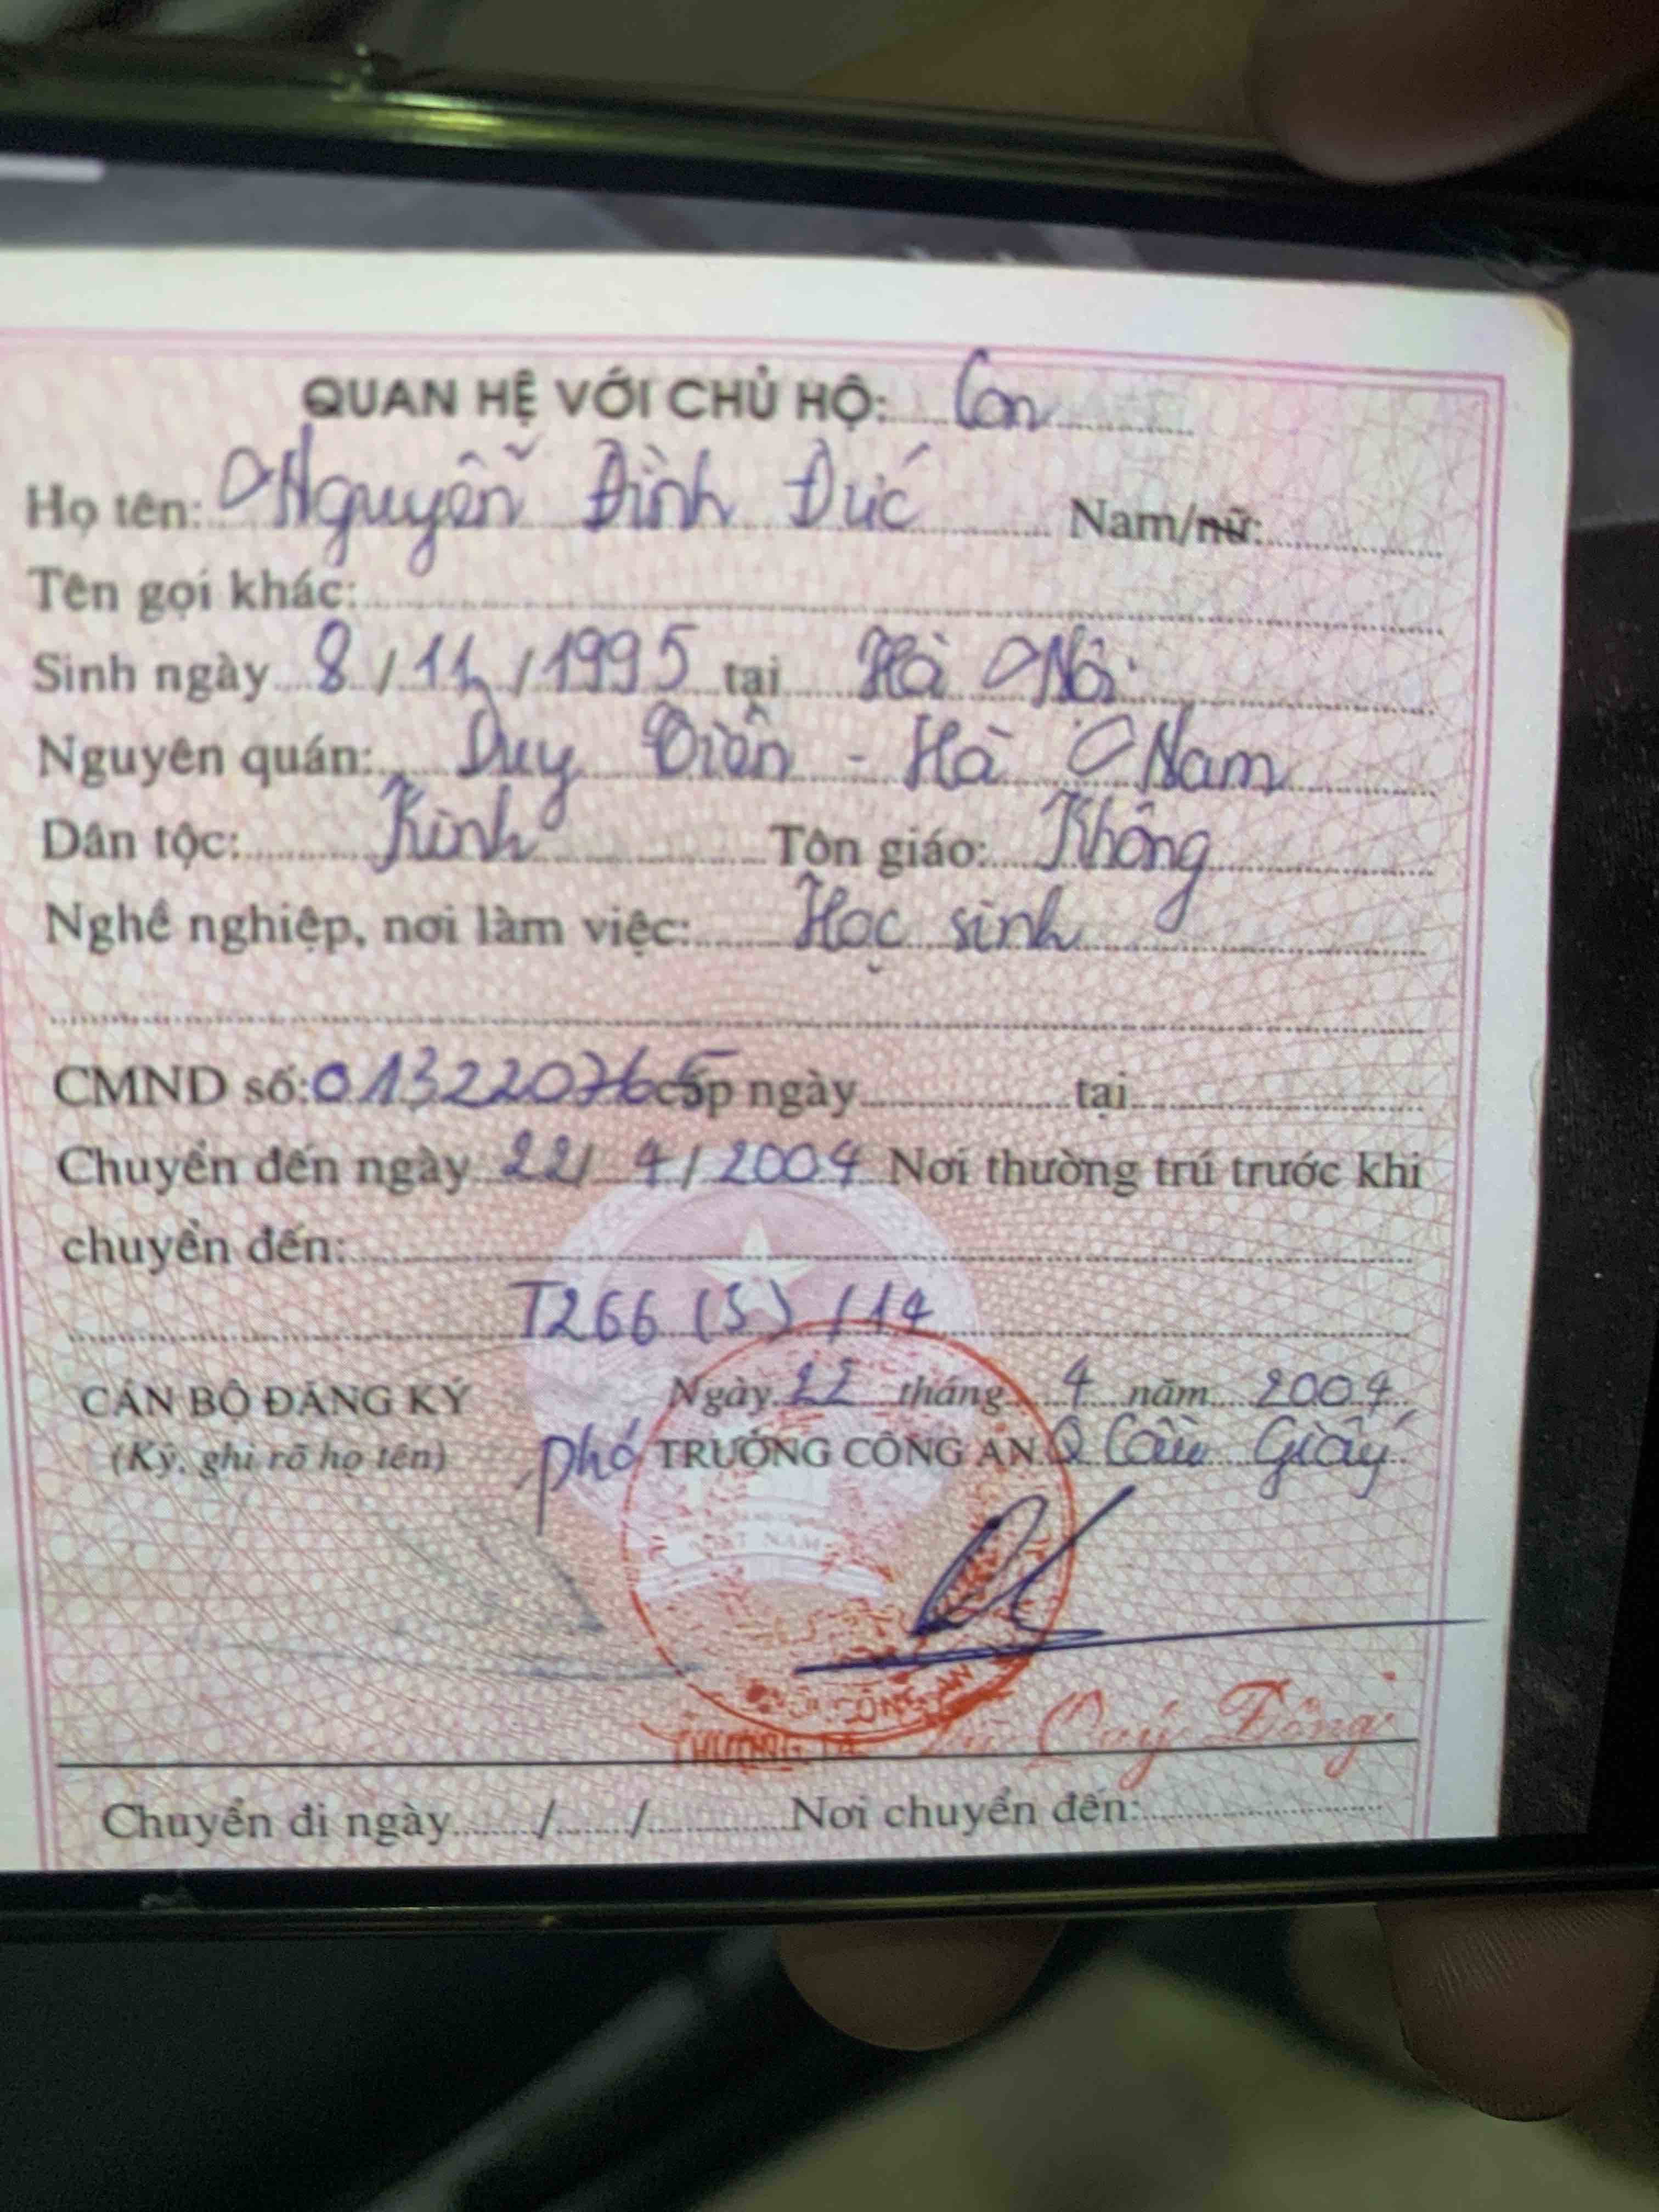 QUAN HỆ VỚI CHỦ HỘ: Con
Họ tên: Nguyễn Đình Đức Nam/nữ:
Tên gọi khác:
Sinh ngày 8/11/1995 tại Hà Nội
Nguyên quán: Duy Tiên - Hà Nam
Dân tộc: Kinh Tôn giáo: Không
Nghề nghiệp, nơi làm việc: Học sinh
CMND số: 013220765 cấp ngày tại
Chuyển đến ngày 22/4/2004 Nơi thường trú trước khi
chuyển đến:
T266 (S) /14
CÁN BỘ ĐĂNG KÝ Ngày 22 tháng 4 năm 2004
(Ký, ghi rõ họ tên) Phó TRƯỞNG CÔNG AN Q Cầu Giấy
VIỆT NAM
CÔNG AN
THƯỢNG TÁ Quý Đông
Chuyển đi ngày / / Nơi chuyển đến: